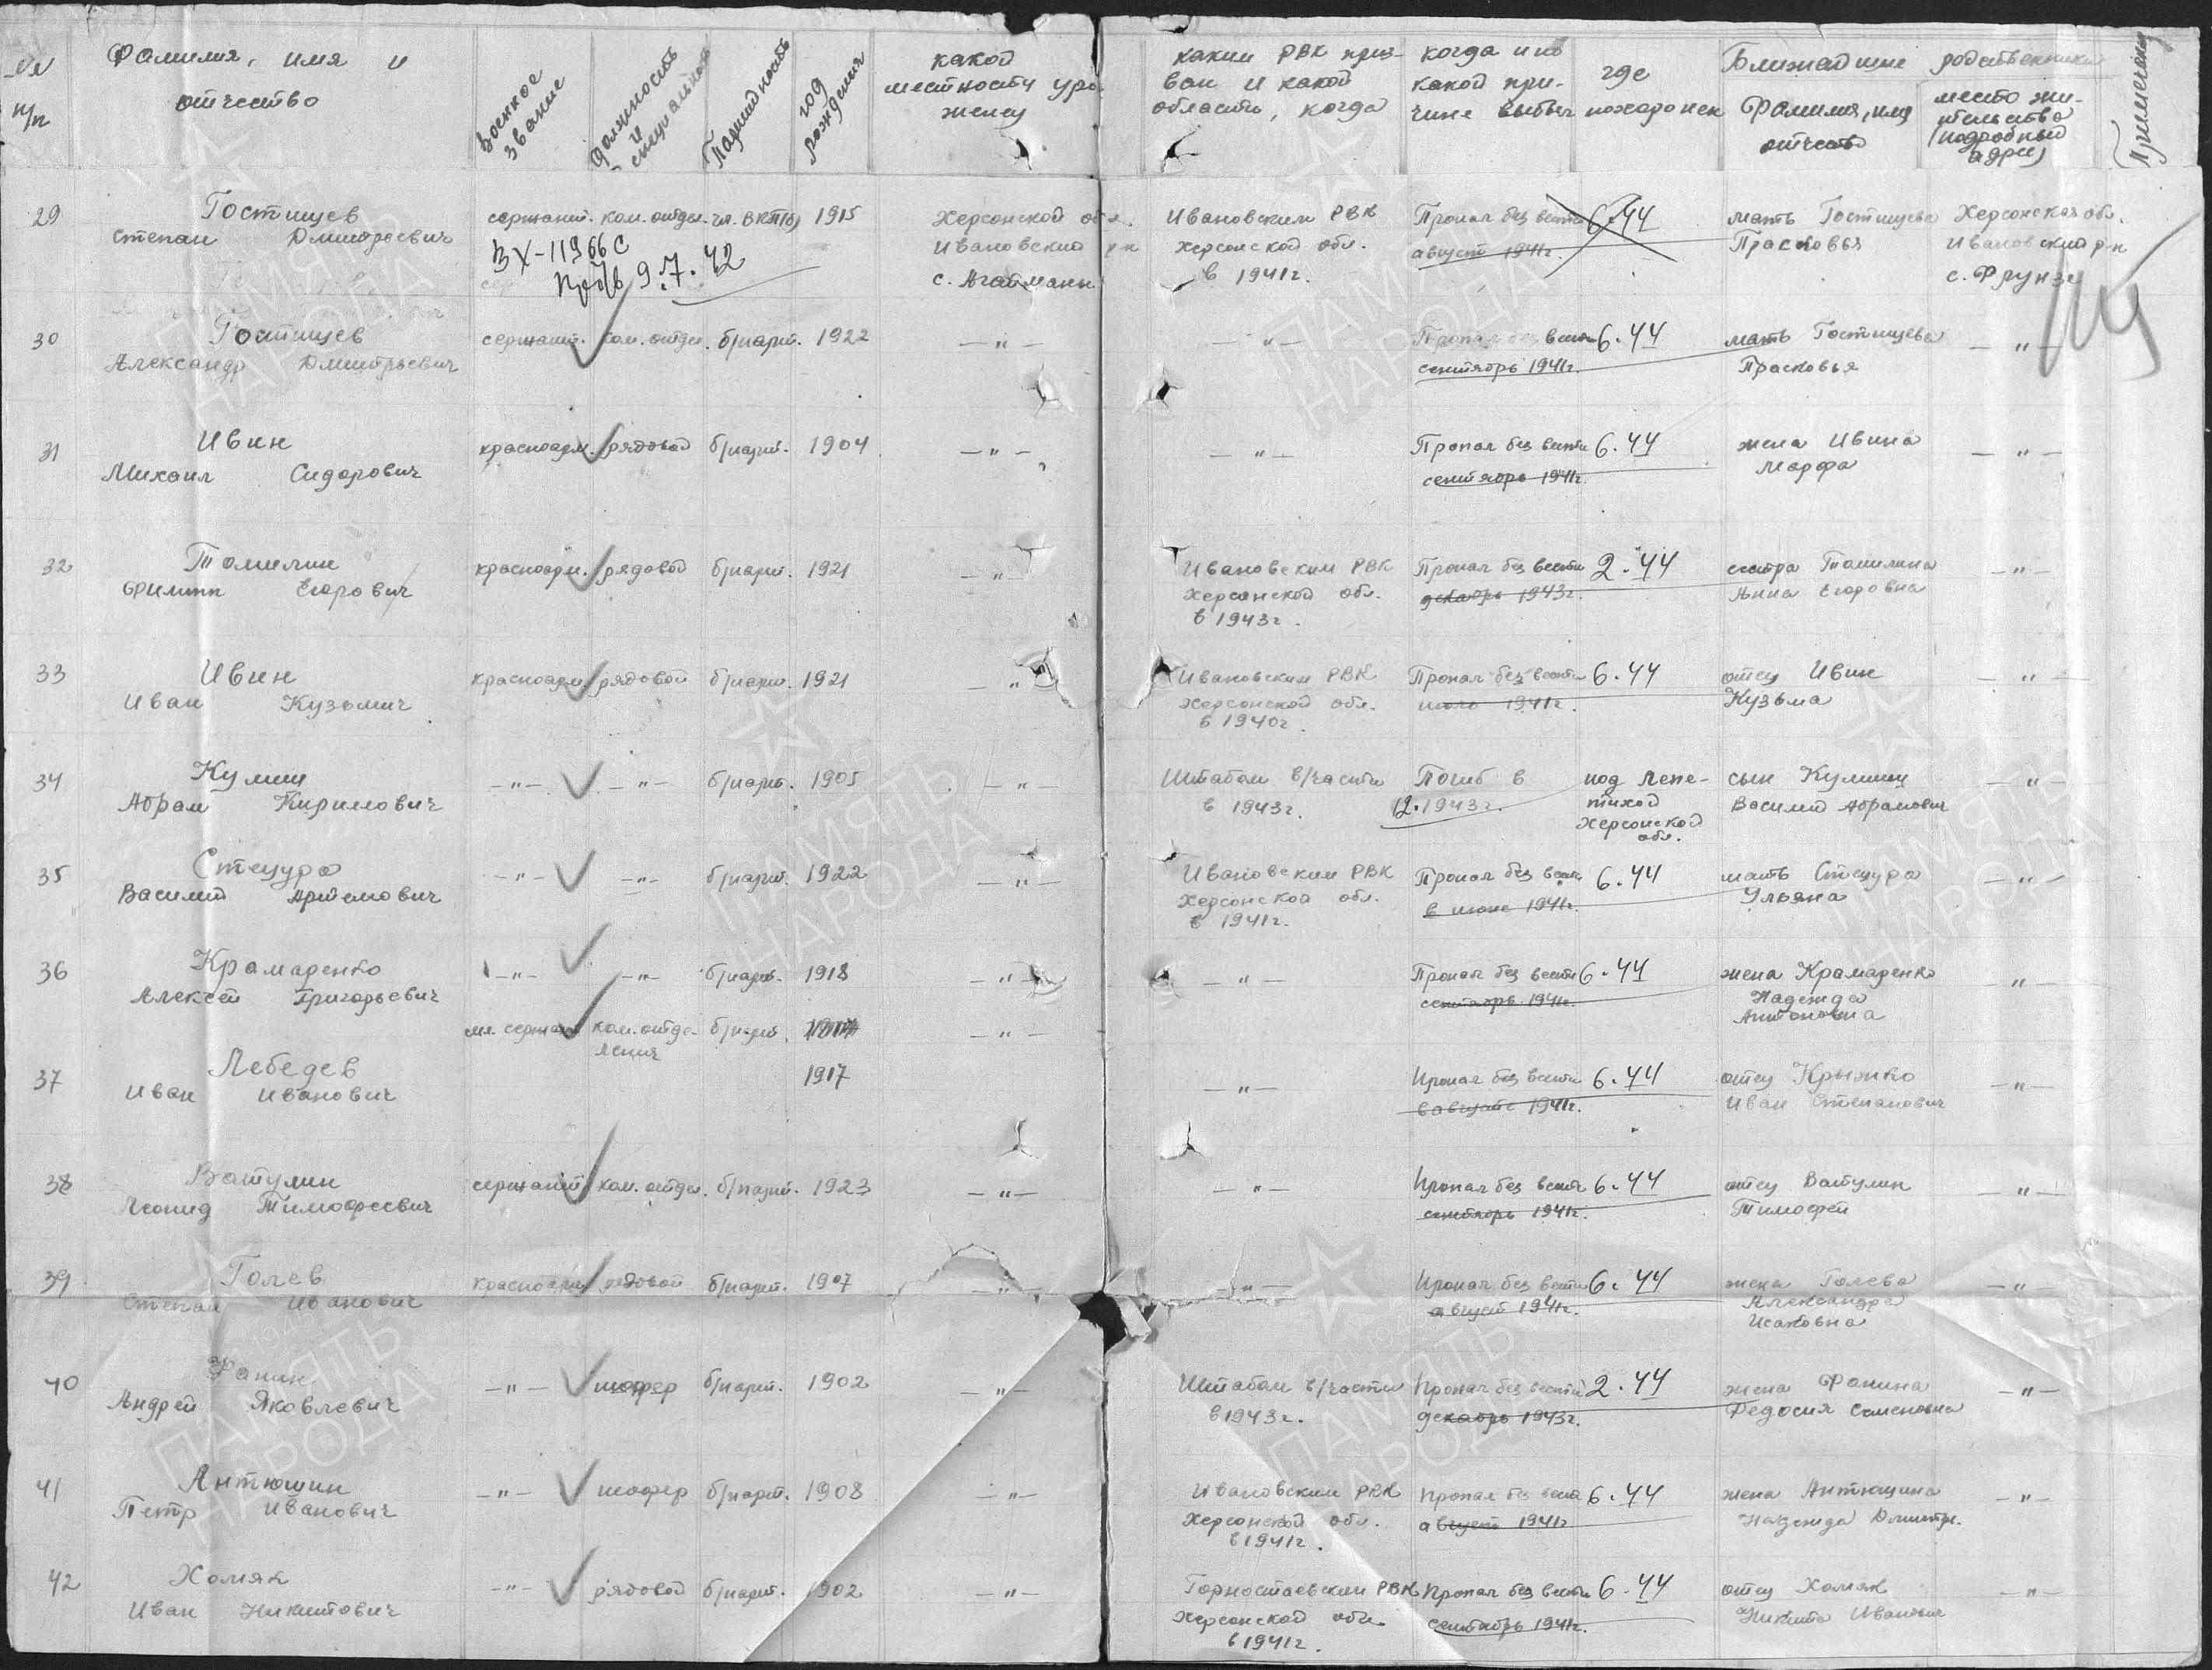 №№ п/п
Фамилия, имя и отчество
Военное звание
Должность и специальность
Партийность
год рождения
какой местности уроженец
каким РВК призван и какой области, когда
когда и по какой причине выбыл
где похоронен
Ближайшие родственники
Фамилия, имя отчество
место жительства (подробный адрес)
29 Гостищев сержант. ком. отдел. чл. ВКП(б) 1915 Херсонской обл. Ивановским РВК Пропал без вести 6.44 мать Гостищева Херсонская обл.
Степан Дмитриевич Ивановский р-н Херсонской обл. август 1941г. Прасковья Ивановский р-н
ВХ-11966с
9.7.42 с. Агайманы в 1941г. с. Фрунзе
30 Гостищев сержант. ком. отдел. б/парт. 1922 —"— —"— Пропал без вести 6.44 мать Гостищева —"—
Александр Дмитрьевич сентябрь 1941г. Прасковья
31 Ивин красноарм. рядовой б/парт. 1904 —"— —"— Пропал без вести 6.44 жена Ивина —"—
Михаил Сидорович сентябрь 1941г. Марфа
32 Томилин красноарм. рядовой б/парт. 1921 —"— Ивановским РВК Пропал без вести 2.44 сестра Томилина —"—
Филипп Егорович Херсонской обл. декабрь 1943г. Анна Егоровна
в 1943г.
33 Ивин красноарм. рядовой б/парт. 1921 —"— Ивановским РВК Пропал без вести 6.44 отец Ивин —"—
Иван Кузьмич Херсонской обл. 1941г. Кузьма
в 1940г.
34 Кулиш —"— —"— б/парт. 1905 —"— Штабом в/части Погиб в под Лепе- сын Кулиш —"—
Абрам Кириллович в 1943г. 12.1943г. тихой Василий Абрамович
Херсонской
обл.
35 Стецура —"— —"— б/парт. 1922 —"— Ивановским РВК Пропал без вести 6.44 мать Стецура —"—
Василий Артемович Херсонской обл. в июне 1941г. Ульяна
в 1941г.
36 Крамаренко —"— —"— б/парт. 1918 —"— —"— Пропал без вести 6.44 жена Крамаренко —"—
Алексей Григорьевич сентябрь 1941г. Надежда
Антоновна
мл. сержант ком. отде- б/парт. —"—
ления
37 Лебедев 1917 —"— Пропал без вести 6.44 отец Крыжко —"—
Иван Иванович в августе 1941г. Иван Степанович
38 Ватулин сержант ком. отдел. б/парт. 1923 —"— —"— Пропал без вести 6.44 отец Ватулин —"—
Леонид Тимофеевич сентябрь 1941г. Тимофей
39 Голев красноарм. рядовой б/парт. 1907 —"— —"— Пропал без вести 6.44 жена Голева —"—
Степан Иванович август 1941г. Александра
Исаковна
40 Фанин —"— шофер б/парт. 1902 —"— Штабом в/части Пропал без вести 2.44 жена Фанина —"—
Андрей Яковлевич в 1943г. декабрь 1943г. Федосия Семеновна
41 Антюшин —"— шофер б/парт. 1908 —"— Ивановским РВК Пропал без вести 6.44 жена Антюшина —"—
Петр Иванович Херсонской обл. август 1941г Надежда Дмитр.
в 1941г.
42 Хомяк —"— рядовой б/парт. 1902 —"— Горностаевским РВК Пропал без вести 6.44 отец Хомяк —"—
Иван Никитович Херсонской обл. сентябрь 1941г. Никита Иванович
в 1941г.
ПАМЯТЬ НАРОДА